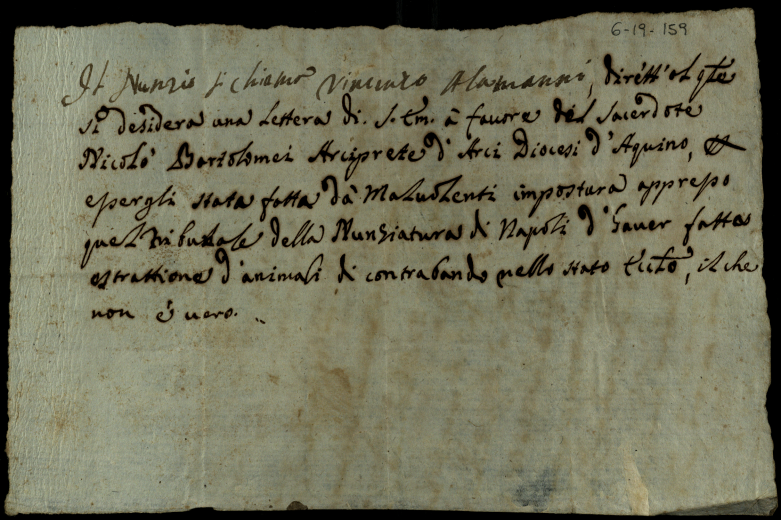 6-19-159
Il Nunzio si chiama Vincenzo Alamanni, dirett' al qle
si desidera una lettera di S. Em. à favore del Sacerdote
Nicolò Bartolomei Arciprete d'Arci Diocesi d'Aquino,
epergli stata fatta dà Malvolenti impostura apprepo
quel Tribunale della Nunziatura di Napoli d'haver fatta
estrattione d'animali di contrabando nello stato Eccto, il che
non é vero.